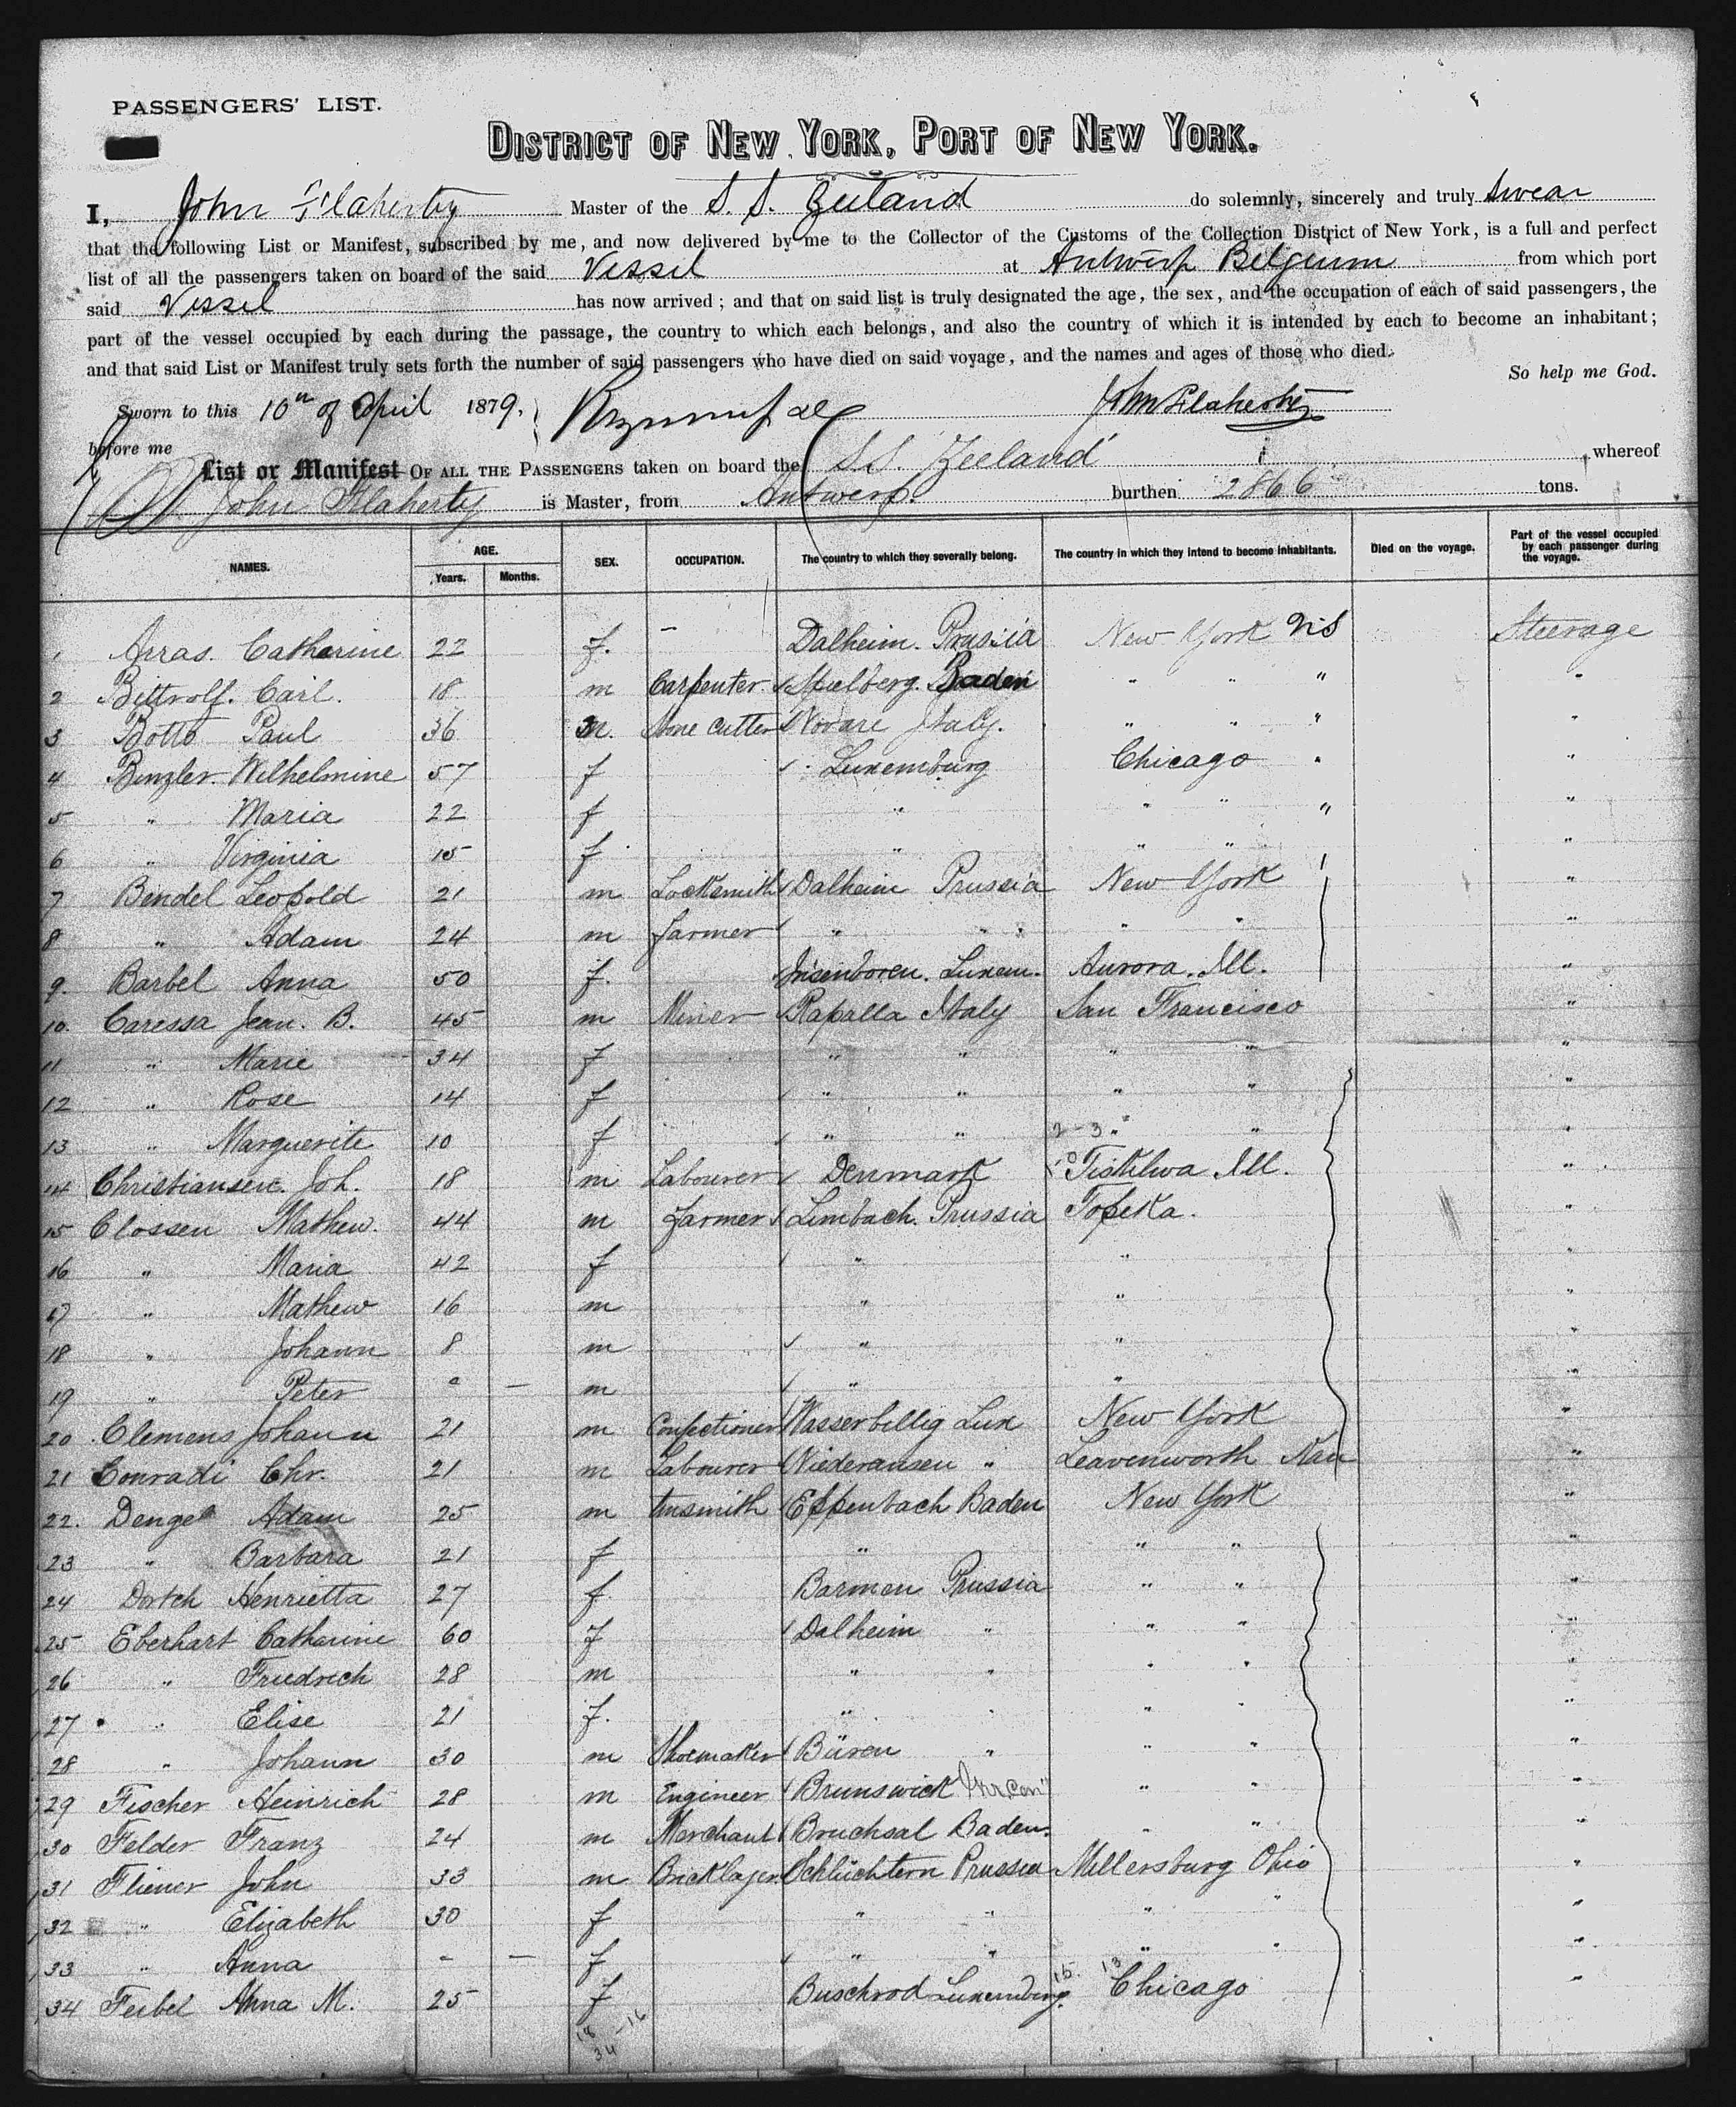 PASSENGERS' LIST.
DISTRICT OF NEW YORK, PORT OF NEW YORK.
I, John Flaherty Master of the S. S. Zeeland do solemnly, sincerely and truly swear
that the following List or Manifest, subscribed by me, and now delivered by me to the Collector of the Customs of the Collection District of New York, is a full and perfect
list of all the passengers taken on board of the said Vessel at Antwerp Belgium from which port
said Vessel has now arrived; and that on said list is truly designated the age, the sex, and the occupation of each of said passengers, the
part of the vessel occupied by each during the passage, the country to which each belongs, and also the country of which it is intended by each to become an inhabitant;
and that said List or Manifest truly sets forth the number of said passengers who have died on said voyage, and the names and ages of those who died.
So help me God.
Sworn to this 10th of April 1879. John Flaherty
before me
List or Manifest OF ALL THE PASSENGERS taken on board the S.S. Zeeland whereof
John Flaherty is Master, from Antwerp. burthen 2866 tons.
NAMES. AGE. Years. Months. SEX. OCCUPATION. The country to which they severally belong. The country in which they intend to become inhabitants. Died on the voyage. Part of the vessel occupied by each passenger during the voyage.
1 Arras. Catharine 22 f. – Dalheim. Prussia New York Steerage
2 Bittrolf. Carl. 18 m Carpenter Spielberg. Baden " " " "
3 Botto Paul 36 m. Stone cutter Novare Italy. " " " "
4 Binzler. Wilhelmine 57 f Luxemburg Chicago " "
5 " Maria 22 f " " " " "
6 " Virginia 15 f " " " "
7 Bendel Leopold 21 m Locksmith Dalheim Prussia New York "
8 " Adam 24 m farmer " " " " "
9. Barbel Anna 50 f. Luxem. Aurora. Ill. "
10. Caressa Jean. B. 45 m Miner Rapalla Italy San Francisco "
11 " Marie 34 f " " " " "
12 " Rose 14 f " " " " "
13 " Marguerite 10 f " " 2-3 " " "
14 Christiansen. Joh. 18 m Labourer Denmark Tiskilwa Ill. "
15 Clossen Mathew. 44 m farmer Limbach. Prussia Topeka. "
16 " Maria 42 f " " "
17 " Mathew 16 m " " "
18 " Johann 8 m " " "
19 " Peter – m " " "
20 Clemens Johann 21 m Confectioner Wasserbillig Lux New York "
21 Conradi Chr. 21 m Labourer Niederansen " Leavenworth Kan "
22. Dengel Adam 25 m tinsmith Eppenbach Baden New York "
23 " Barbara 21 f " " " "
24 Dortch Henrietta 27 f. Barmen Prussia " " "
25 Eberhart Catharine 60 f Dalheim " " " "
26 " Friedrich 28 m " " " " "
27 " Elise 21 f. " " " " "
28 " Johann 30 m Shoemaker Büren " " " "
29 Fischer Heinrich 28 m Engineer Brunswick " " "
30 Felder Franz 24 m Merchant Bruchsal Baden. " " "
31 Fliener John 33 m Bricklayer Schlüchtern Prussia Millersburg Ohio "
32 " Elizabeth 30 f " " " " "
33 " Anna – – f " " " " "
34 Feibel Anna M. 25 f Buschrod Luxemburg. 15. 13 Chicago "
18 –16
34